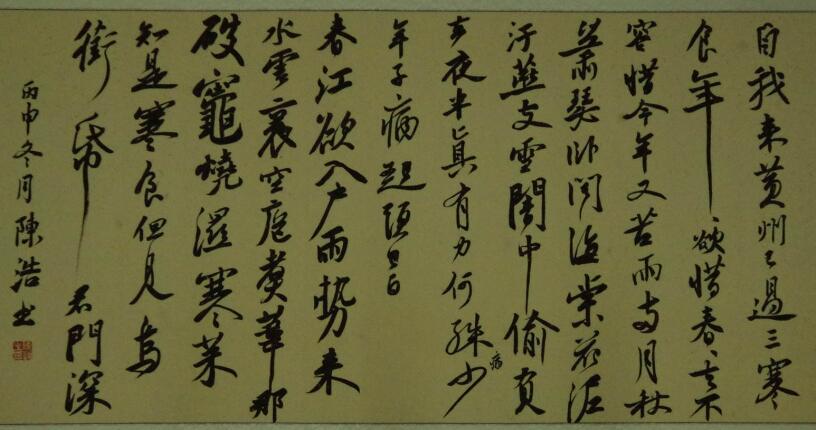 自我来黄州已過三寒
食年〻欲惜春〻去不
容惜今年又苦雨兩月秋
蕭瑟卧聞海棠花泥
汙燕支雪闇中偷負
去夜半真有力何殊少
病
年子病起頭已白
春江欲入户雨勢来
水雲裏空庖煑葦那
破竈燒濕寒菜
知是寒食但見烏
銜帋 君門深
丙申冬月陳浩书